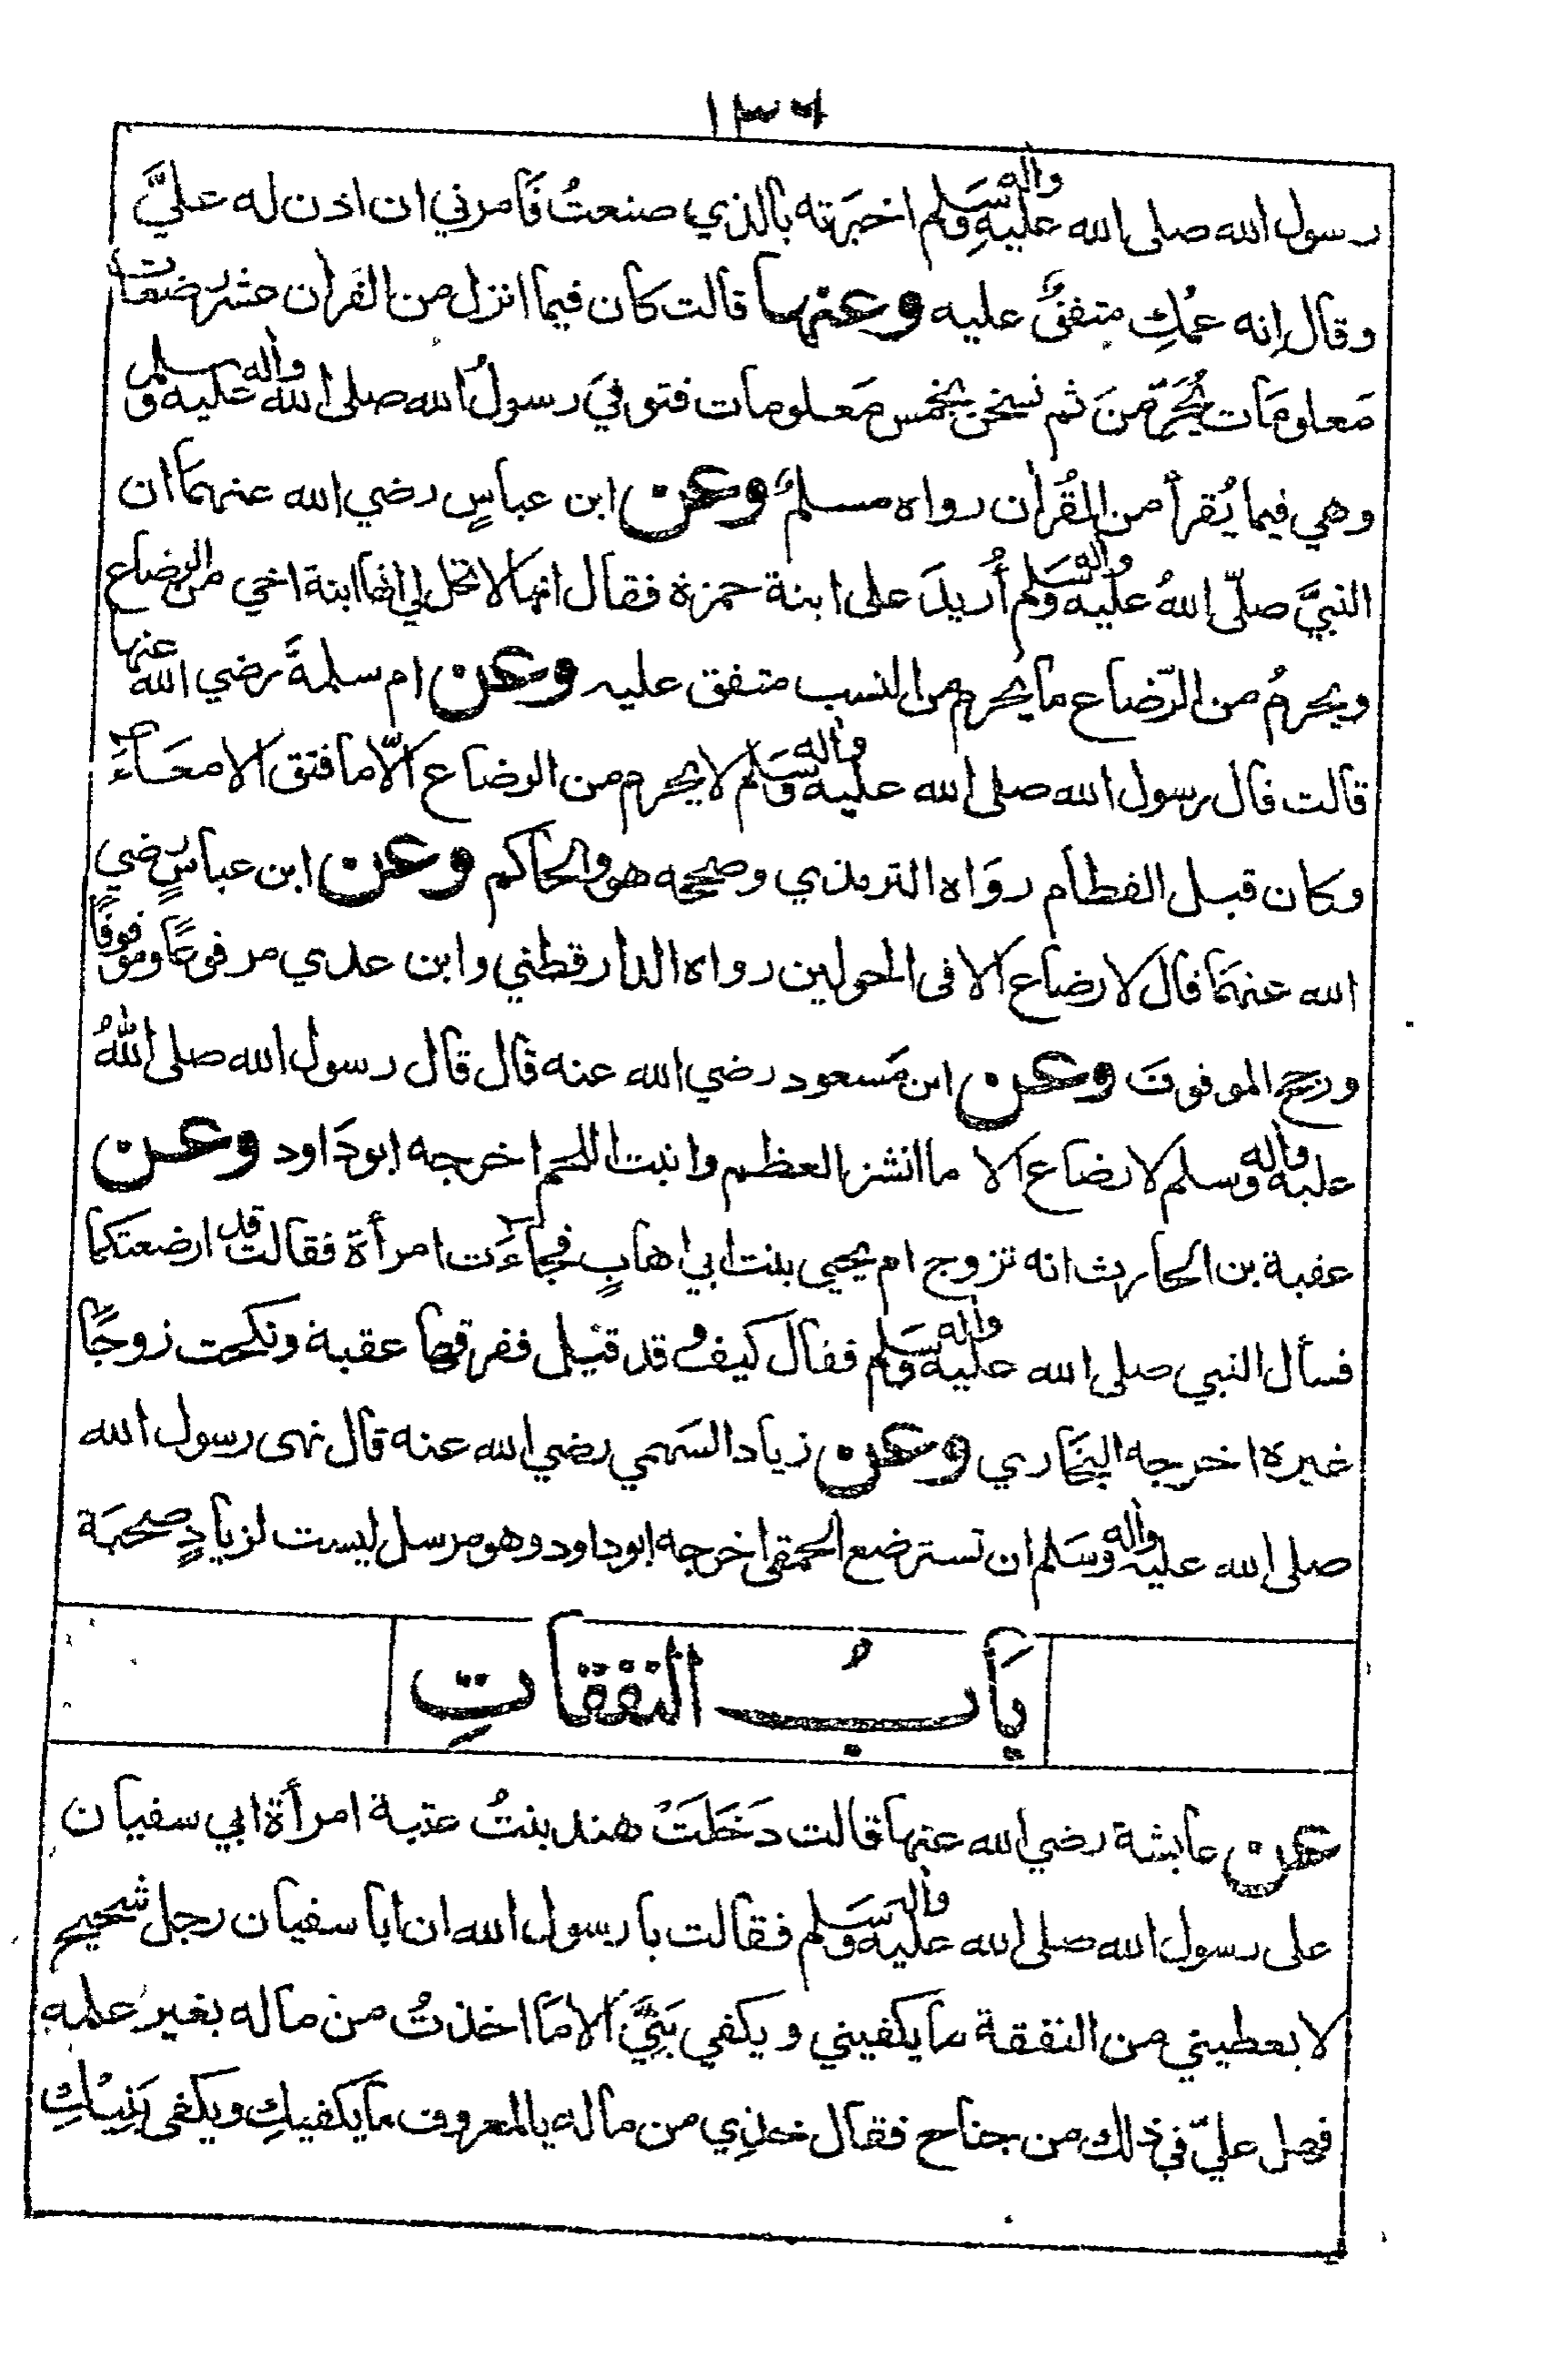 ١٣٦
رسول الله صلى الله عليهِ واله وسَلم اخبَرته بالذي صنعتُ فَامرني ان اذن له عليَّ
وقال اِنه عمُكِ متفقٌ عليه وعنها قالت كان فيما انزل من القرأن عشر رضعات
مَعلومَات يُحَرّمنَ ثم نسخن بخمس مَعلومات فتوفيَ رسولُ الله صلى الله عليه واله وسلم
وهي فيما يُقرأ من القُرأن رواه مسلمٌ وعن ابن عباسٍ رضي الله عنهمَا ان
النبيَّ صلّى اللهُ عليه واله وسَلم أُريدَ على ابنة حمزة فقال انها لا تحل لي انها ابنة اخي من الرضاع
ويحرمُ من الرّضاع ما يحرم من النسب متفق عليه وعن ام سلمةَ رضي الله عنها
قالت قال رسول الله صلى الله عليه واله وسَلم لا يحرم من الرضاع الّا ما فتق الامعَاءَ
وكان قبل الفطام روَاه الترمذي وصححه هو والحاكم وعن ابن عباسٍ رضي
الله عنهمَا قال لا رضاع الا فى الحولين رواه الدارقطني وابن عدي مرفوعًا وموقوفًا
ورجح الموقوف وعن ابن مَسعود رضي الله عنه قال قال رسول الله صلى اللهُ
عليه واله وسلم لا رضاع الا ما انشز العظم وانبت اللحم اخرجه ابودَاود وعن
عقبة بن الحارث انه تزوج ام يحيى بنت ابي اهابٍ فجاءَت امرأة فقالت قد ارضعتكما
فسأل النبي صلى الله عليه واله وسَلم فقال كيف وقد قيْل ففرقها عقبة ونكحت زوجًا
غيره اخرجه البخَاري وعن زياد السَهمي رضي الله عنه قال نهى رسول الله
صلى الله عليه واله وسَلم ان تسترضع الحمقى اخرجه ابوداود وهو مرسل ليست لزيادٍ صحبَة
بَابُ النفقاتِ
عن عايشة رضي الله عنها قالت دَخَلَتْ هند بنتُ عتبة امرأة ابي سفيان
على رسول الله صلى الله عليه واله وسَلم فقالت يا رسول الله ان ابا سفيان رجل شحيح
لا يعطيني من النفقة ما يكفيني ويكفي بَنِيَّ الا مَا اخذتُ من ماله بغير علمه
فهل عليّ في ذلك من جناح فقال خذِي من ماله بالمعروف ما يكفيكِ ويكفى بَنِيْكِ